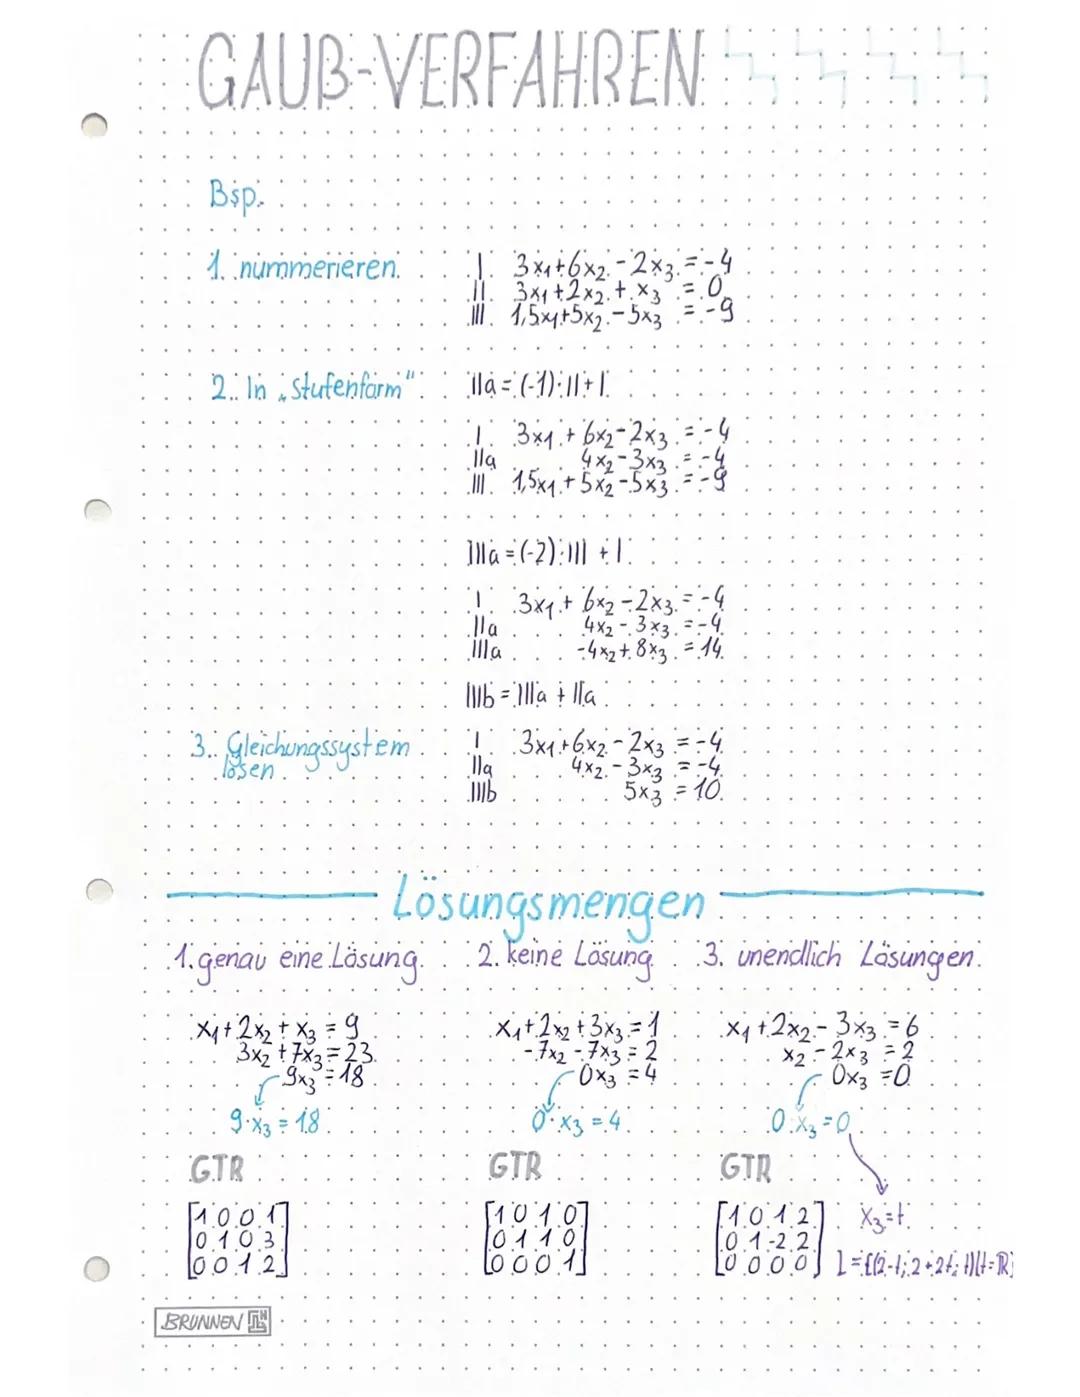 GAUß-VERFAHREN
Bsp.
1. nummerieren
I 3x₁+6x₂-2x₃=-4
II 3x₁+2x₂+x₃=0
III 1,5x₁+5x₂-5x₃=-9
2. In „Stufenform"
IIa=(-1)·II+I
I 3x₁+6x₂-2x₃=-4
IIa 4x₂-3x₃=-4
III 1,5x₁+5x₂-5x₃=-9
IIIa=(-2)·III+I
I 3x₁+6x₂-2x₃=-4
IIa 4x₂-3x₃=-4
IIIa -4x₂+8x₃=14
IIIb=IIIa+IIa
3. Gleichungssystem
lösen
I 3x₁+6x₂-2x₃=-4
IIa 4x₂-3x₃=-4
IIIb 5x₃=10
Lösungsmengen
1. genau eine Lösung
x₁+2x₂+x₃=9
3x₂+7x₃=23
9x₃=18
9·x₃=18
GTR
[1 0 0 1]
[0 1 0 3]
[0 0 1 2]
2. keine Lösung
x₁+2x₂+3x₃=1
-7x₂-7x₃=2
0x₃=4
0·x₃=4
GTR
[1 0 1 0]
[0 1 1 0]
[0 0 0 1]
3. unendlich Lösungen
x₁+2x₂-3x₃=6
x₂-2x₃=2
0x₃=0
0·x₃=0
GTR
[1 0 1 2]
[0 1 -2 2]
[0 0 0 0]
x₃=t
L={(2-t; 2+2t; t)|t=ℝ}
BRUNNEN